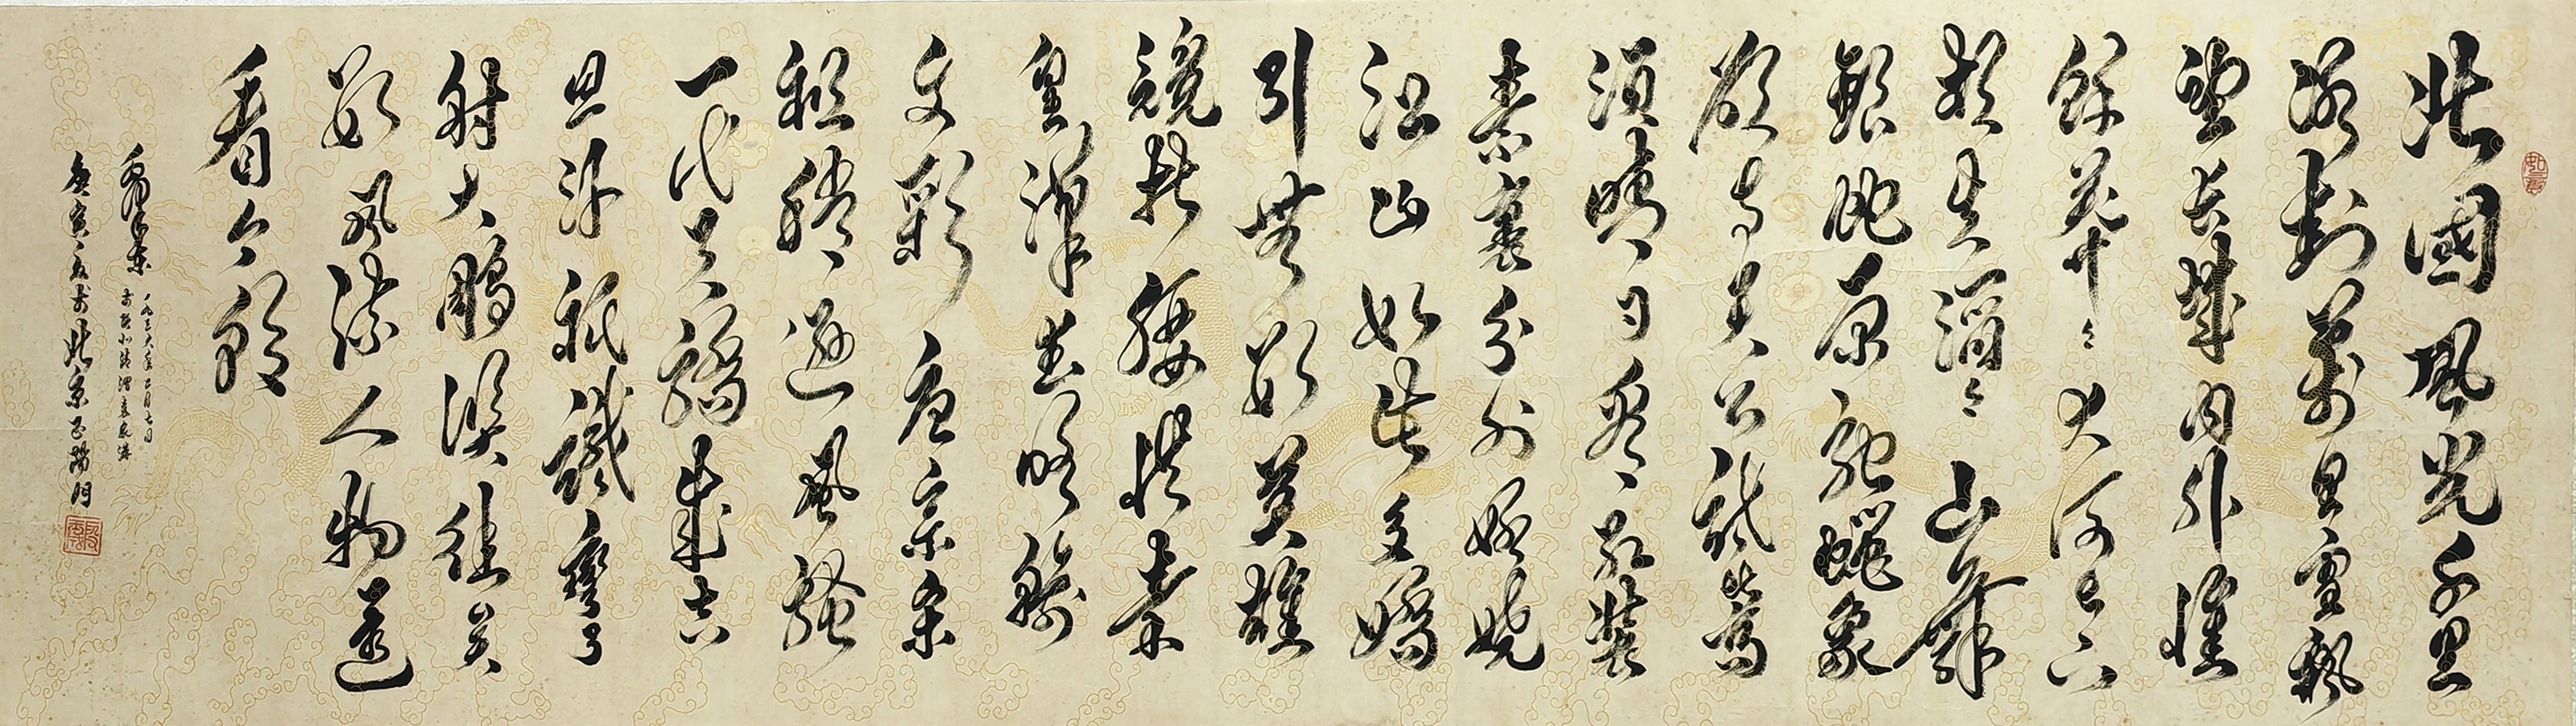 北國風光千里
冰封萬里雪飄
望長城內外惟
餘莽〻大河上下
頓失滔〻山舞
銀蛇原馳蠟象
欲與天公試比高
須晴日看紅裝
素裹分外妖嬈
江山如此多嬌
引無數英雄
競折腰惜秦
皇漢武略輸
文彩唐宗宋
祖稍遜風騷
一代天驕成吉
思汗祇識彎弓
射大鵰俱往矣
數風流人物還
看今朝
毛澤東
一九三六年二月七日
於陝北清澗袁家溝
庚寅 於北京正陽門